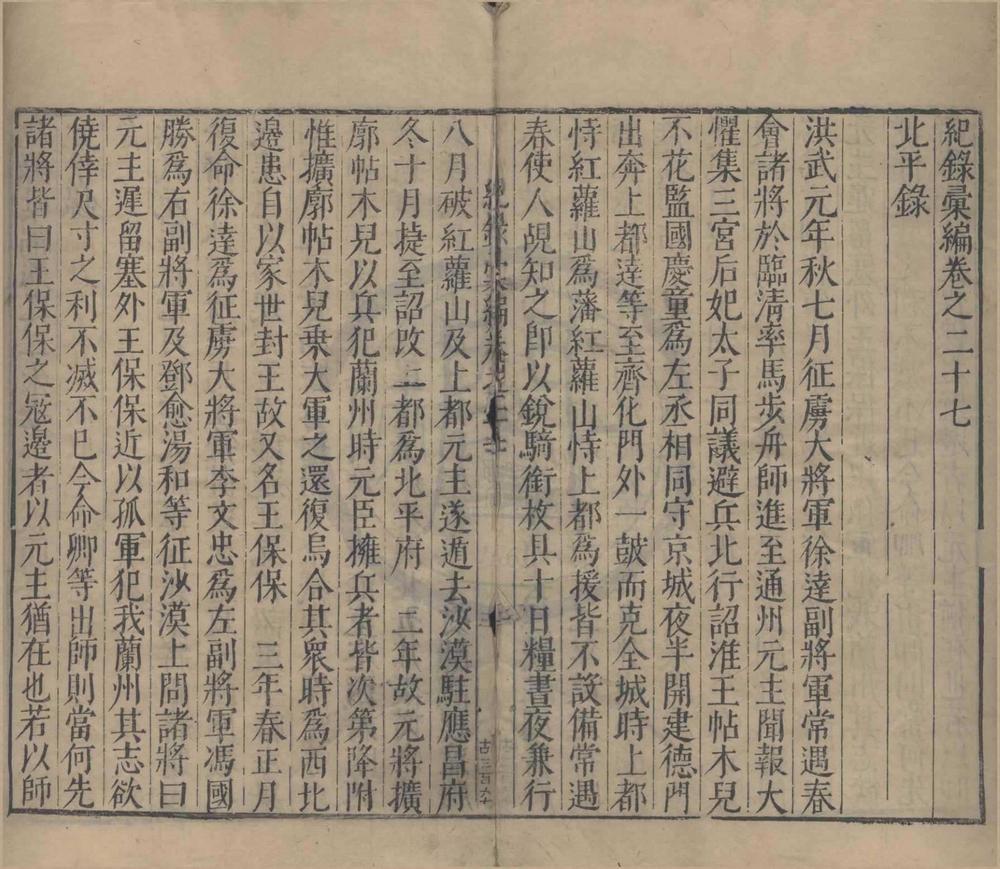 紀錄彙編卷之二十七
北平錄
洪武元年秋七月征虜大將軍徐達副將軍常遇春
會諸將於臨清率馬步舟師進至通州元主聞報大
懼集三宮后妃太子同議避兵北行詔淮王帖木兒
不花監國慶童爲左丞相同守京城夜半開建德門
出奔上都達等至齊化門外一鼓而克全城時上都
恃紅蘿山爲藩紅蘿山恃上都爲援皆不設備常遇
春使人覘知之即以銳騎銜枚具十日糧晝夜兼行
紀錄彙編卷之二十七
八月破紅蘿山及上都元主遂遁去沙漠駐應昌府
冬十月捷至詔改上都爲北平府 二年故元將擴
廓帖木兒以兵犯蘭州時元臣擁兵者皆次第降附
惟擴廓帖木兒乗大軍之還復烏合其衆時爲西北
邊患自以家世封王故又名王保保 三年春正月
復命徐達爲征虜大將軍李文忠爲左副將軍馮國
勝爲右副將軍及鄧愈湯和等征沙漠上問諸將曰
元主遲留塞外王保保近以孤軍犯我蘭州其志欲
僥倖尺寸之利不滅不已今命卿等出師則當何先
諸將皆曰王保保之寇邊者以元主猶在也若以師